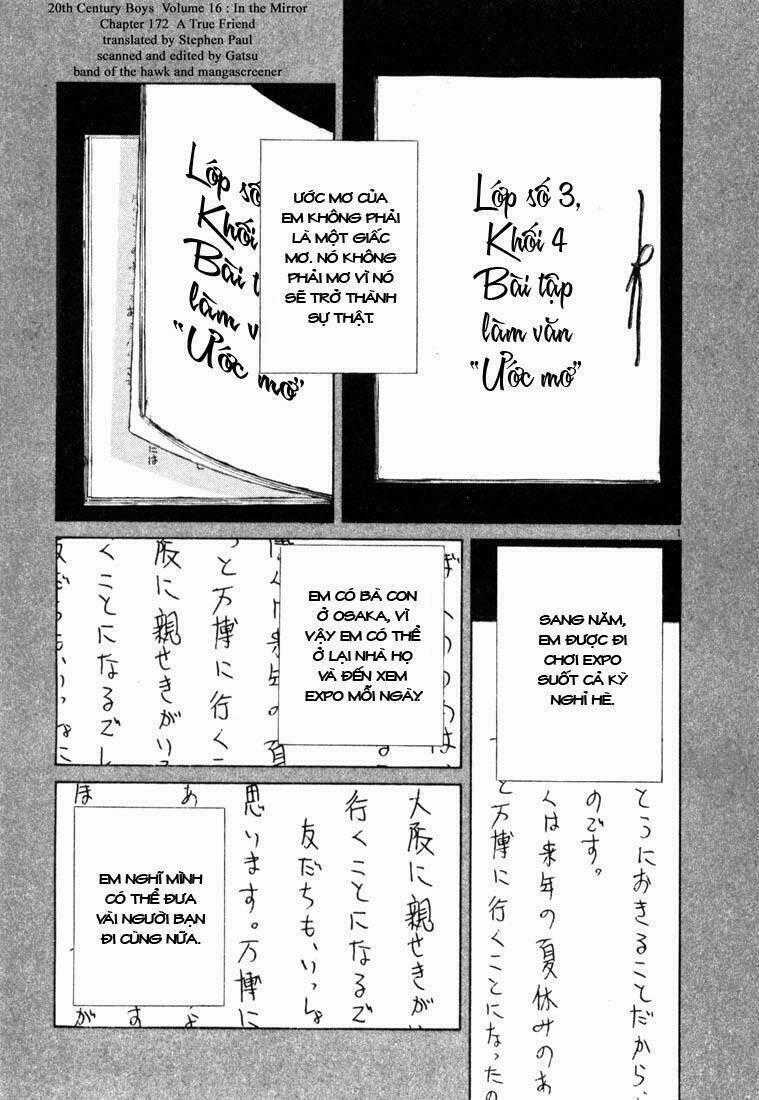 20th Century Boys Volume 16 : In the Mirror
Chapter 172 A True Friend
translated by Stephen Paul
scanned and edited by Gatsu
band of the hawk and mangascreener
Lớp số 3,
Khối 4
Bài tập
làm văn
"Ước mơ"
Lớp số
Khối
Bài t
làm v
"Ước mơ"
ƯỚC MƠ CỦA
EM KHÔNG PHẢI
LÀ MỘT GIẤC
MƠ. NÓ KHÔNG
PHẢI MƠ VÌ NÓ
SẼ TRỞ THÀNH
SỰ THẬT.
1
SANG NĂM,
EM ĐƯỢC ĐI
CHƠI EXPO
SUỐT CẢ KỲ
NGHỈ HÈ.
とうにおきることだから
のです。
くは来年の夏休みのあ
と万博に行くことになったの
EM CÓ BÀ CON
Ở OSAKA, VÌ
VẬY EM CÓ THỂ
Ở LẠI NHÀ HỌ
VÀ ĐẾN XEM
EXPO MỖI NGÀY.
っと万博に行くこ
阪に親せきがい
くことになるでし
大阪に親せきがい
行くことになるで
友だちも、いっしょ
思います。万博に
EM NGHĨ MÌNH
CÓ THỂ ĐƯA
VÀI NGƯỜI BẠN
ĐI CÙNG NỮA.